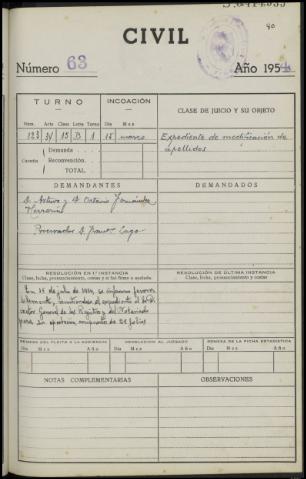 40
CIVIL
Número 63 Año 1954
TURNO INCOACIÓN CLASE DE JUICIO Y SU OBJETO
Núm. Arts. Clase Letra Tarea Día Mes
123 IV 15 B 1 15 marzo Expediente de modificación de
apellidos
Demanda
Cuantía Reconvención
TOTAL
DEMANDANTES DEMANDADOS
D. Arturo y D. Octavio Fernández
Procurador D. Lago
RESOLUCIÓN EN 1.ª INSTANCIA RESOLUCIÓN DE ÚLTIMA INSTANCIA
Clase, fecha, pronunciamiento, costas y si fué firme o apelada Clase, fecha, pronunciamiento y costas
En 15 de julio de 1954, se informa favora-
blemente, el expediente al Di-
rector General de los Registros y del Notariado
para su de 25 folios
REMESA DEL PLEITO A LA AUDIENCIA DEVOLUCIÓN AL JUZGADO REMESA DE LA FICHA ESTADÍSTICA
Día Mes Año Día Mes Año Día Mes Año
NOTAS COMPLEMENTARIAS OBSERVACIONES